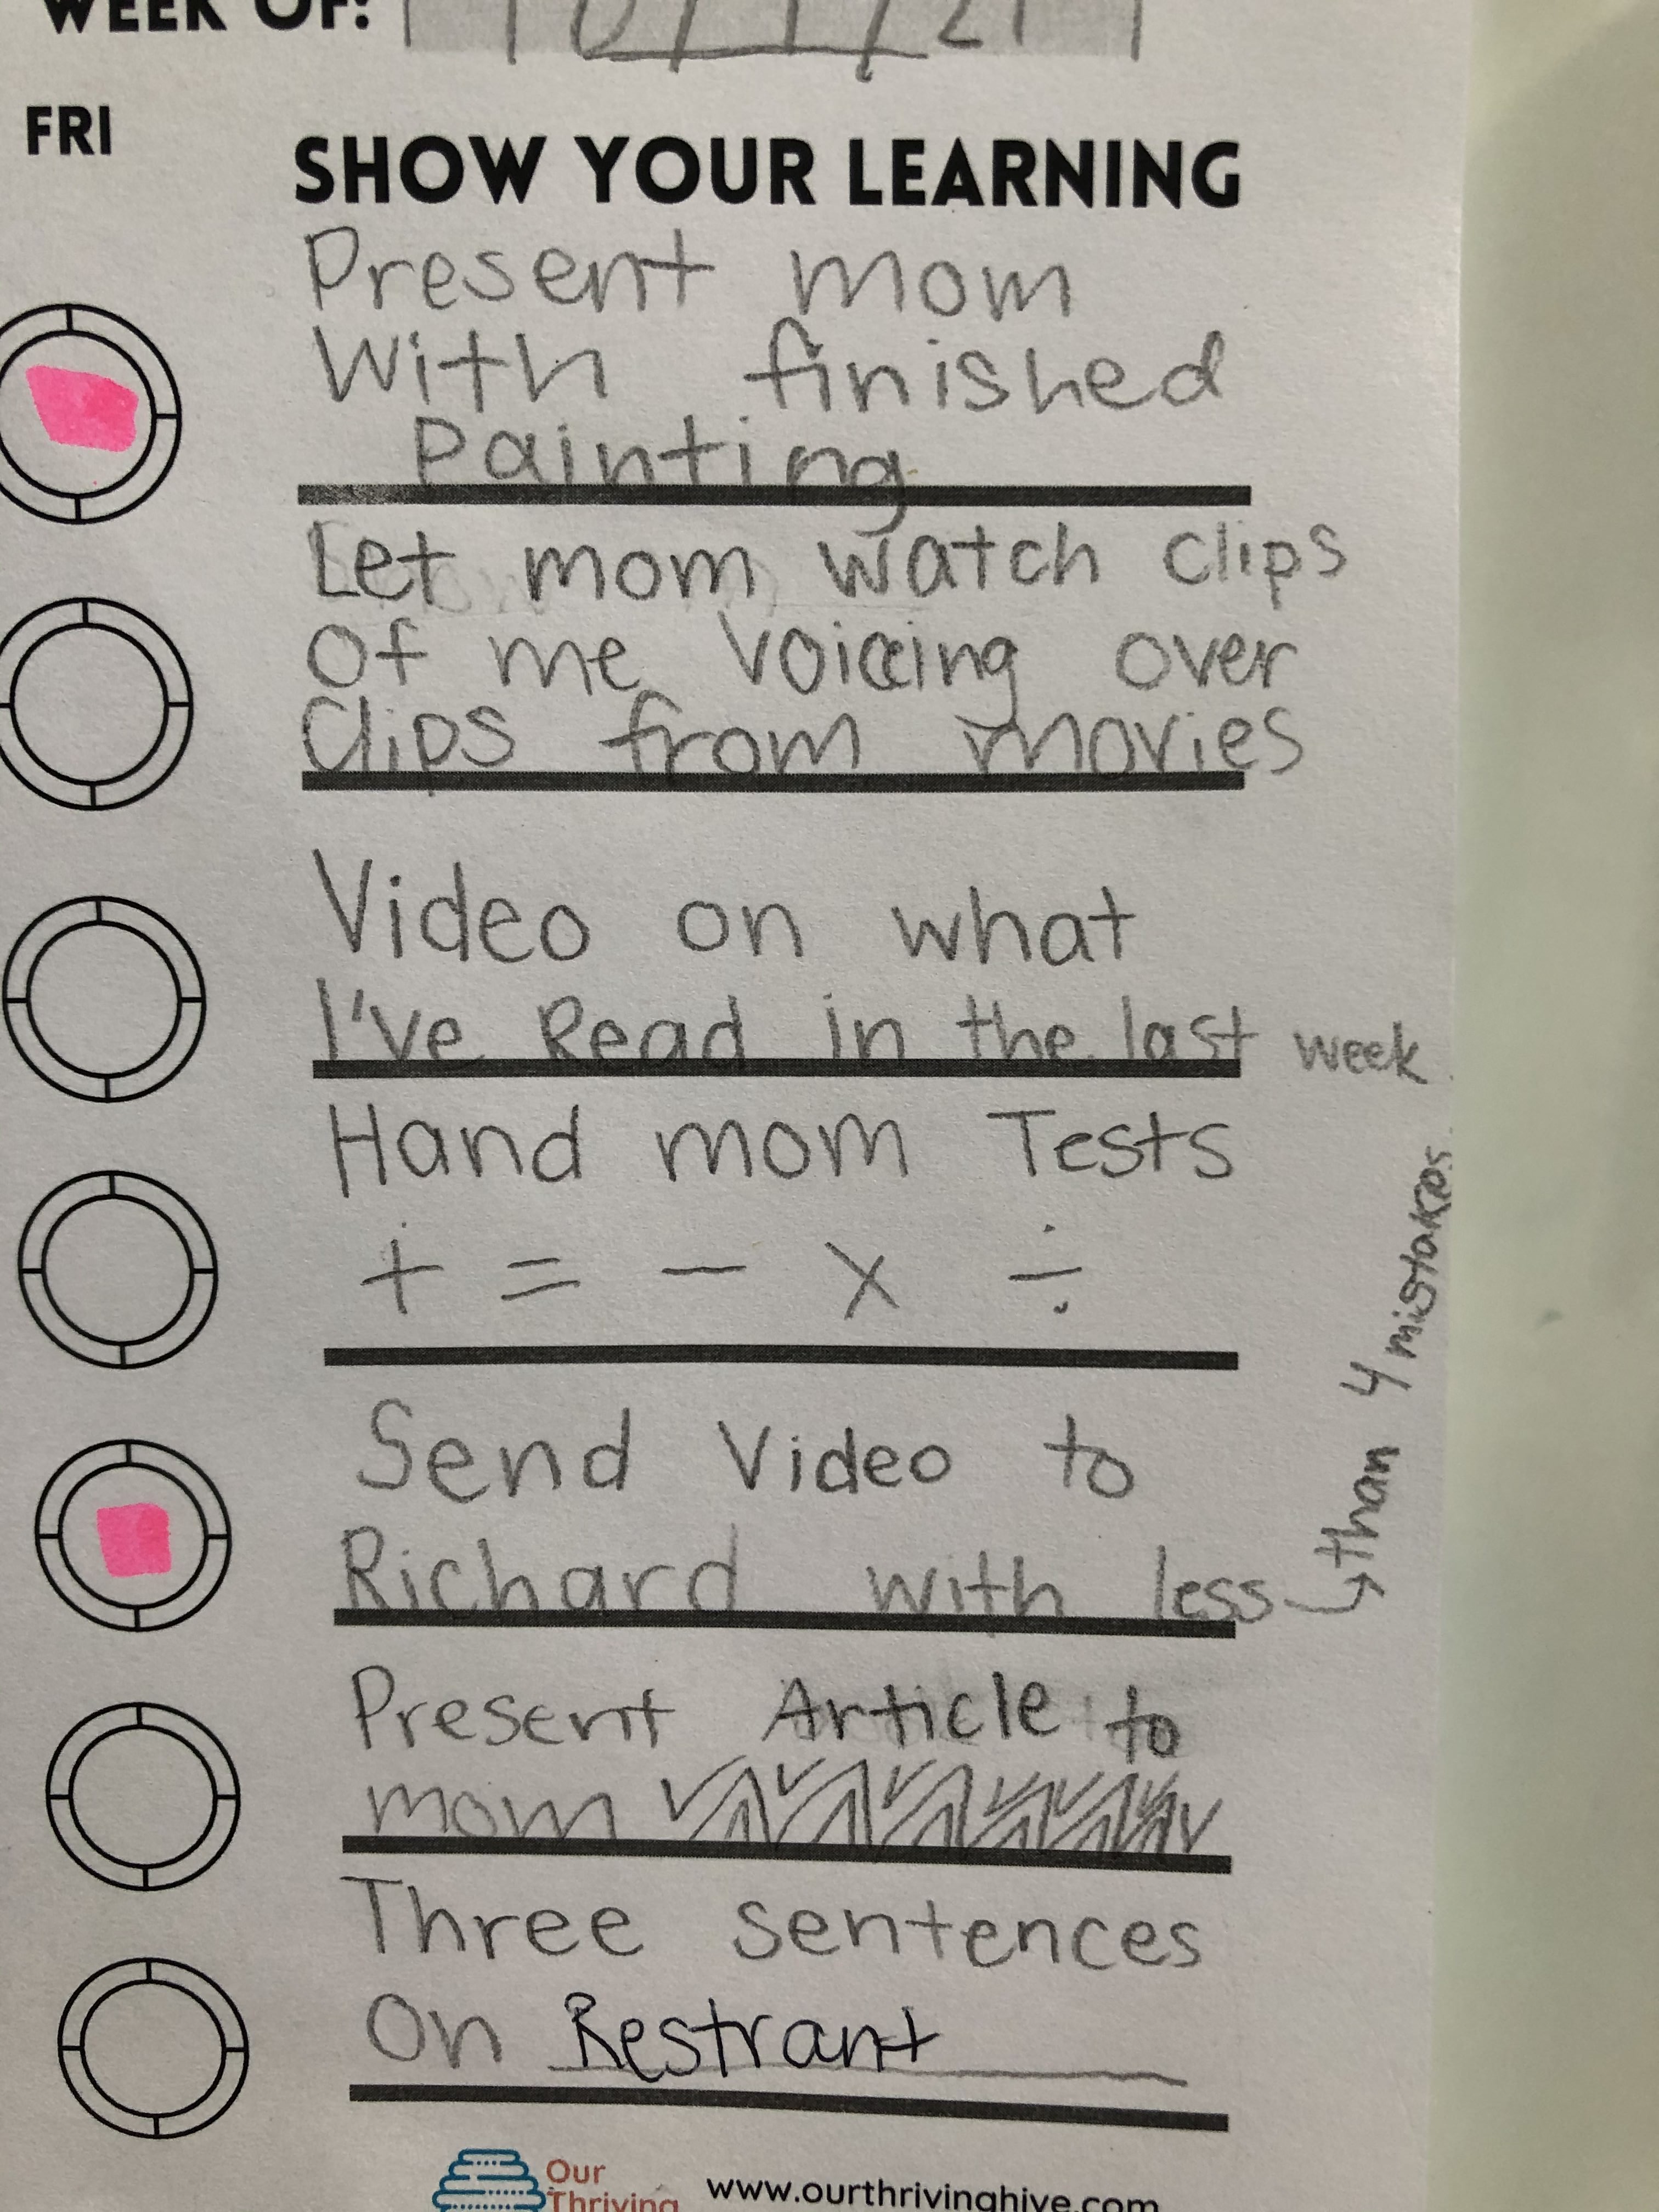 WEEK OF: 10/1/21
FRI
SHOW YOUR LEARNING
Present mom
With finished
Painting
Let mom watch clips
Of me Voiccing over
Clips from movies
Video on what
I've Read in the last week
Hand mom Tests
+ = - x ÷
Send Video to
Richard with less
than 4 mistakes
Present Article to
mom
Three sentences
On Restrant
Our
Thriving
www.ourthrivinghive.com